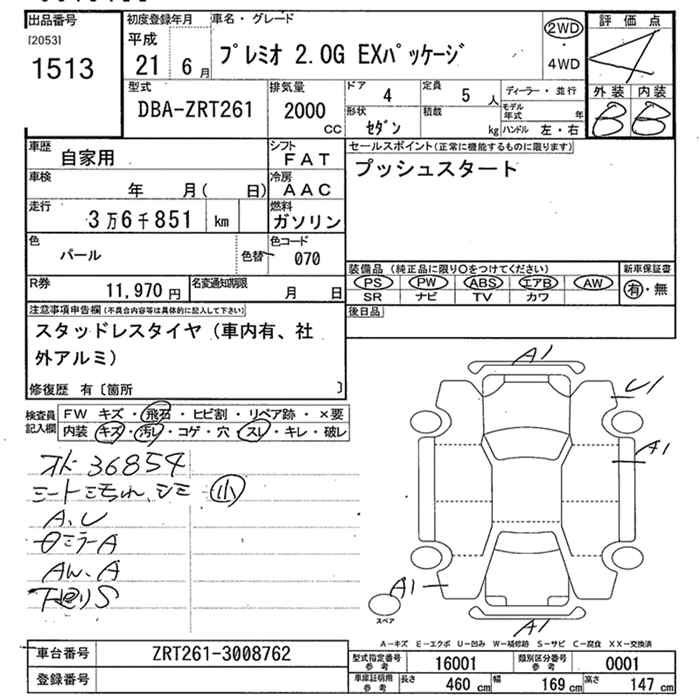 出品番号
[2053]
1513
初度登録年月
平成
21 6月
車名・グレード
プレミオ 2.0G EXパッケージ
2WD
・
4WD
評価点
4
外装 内装
B B
型式
DBA-ZRT261
排気量
2000
CC
ドア
4
定員
5 人
形状
セダン
積載
kg
ディーラー・並行
モデル年式 年
ハンドル 左・右
車歴
自家用
シフト
FAT
車検
年 月( 日)
冷房
AAC
走行
3万6千851 km
燃料
ガソリン
色
パール
色替
色コード
070
R券
11,970 円
名変通知期限
月 日
セールスポイント(正常に機能するものに限ります)
プッシュスタート
装備品 (純正品に限り○をつけてください)
PS PW ABS エアB AW
SR ナビ TV カワ
新車保証書
有・無
後日品
注意事項申告欄(不具合内容等は具体的に記入して下さい)
スタッドレスタイヤ(車内有、社
外アルミ)
修復歴 有〔箇所 〕
検査員
記入欄
FW キズ・飛石・ヒビ割・リペア跡・×要
内装 キズ・汚レ・コゲ・穴・スレ・キレ・破レ
36854
シートミ
小
A、U
ミラーA
AW、A
下廻りS
A1
U1
A1
A1
A1
スペア
A-キズ E-エクボ U-凹み W-補修跡 S-サビ C-腐食 XX-交換済
車台番号
ZRT261-3008762
登録番号
型式指定番号
参考
16001
類別区分番号
参考
0001
車庫証明用
参考
長さ 460 cm
幅 169 cm
高さ 147 cm